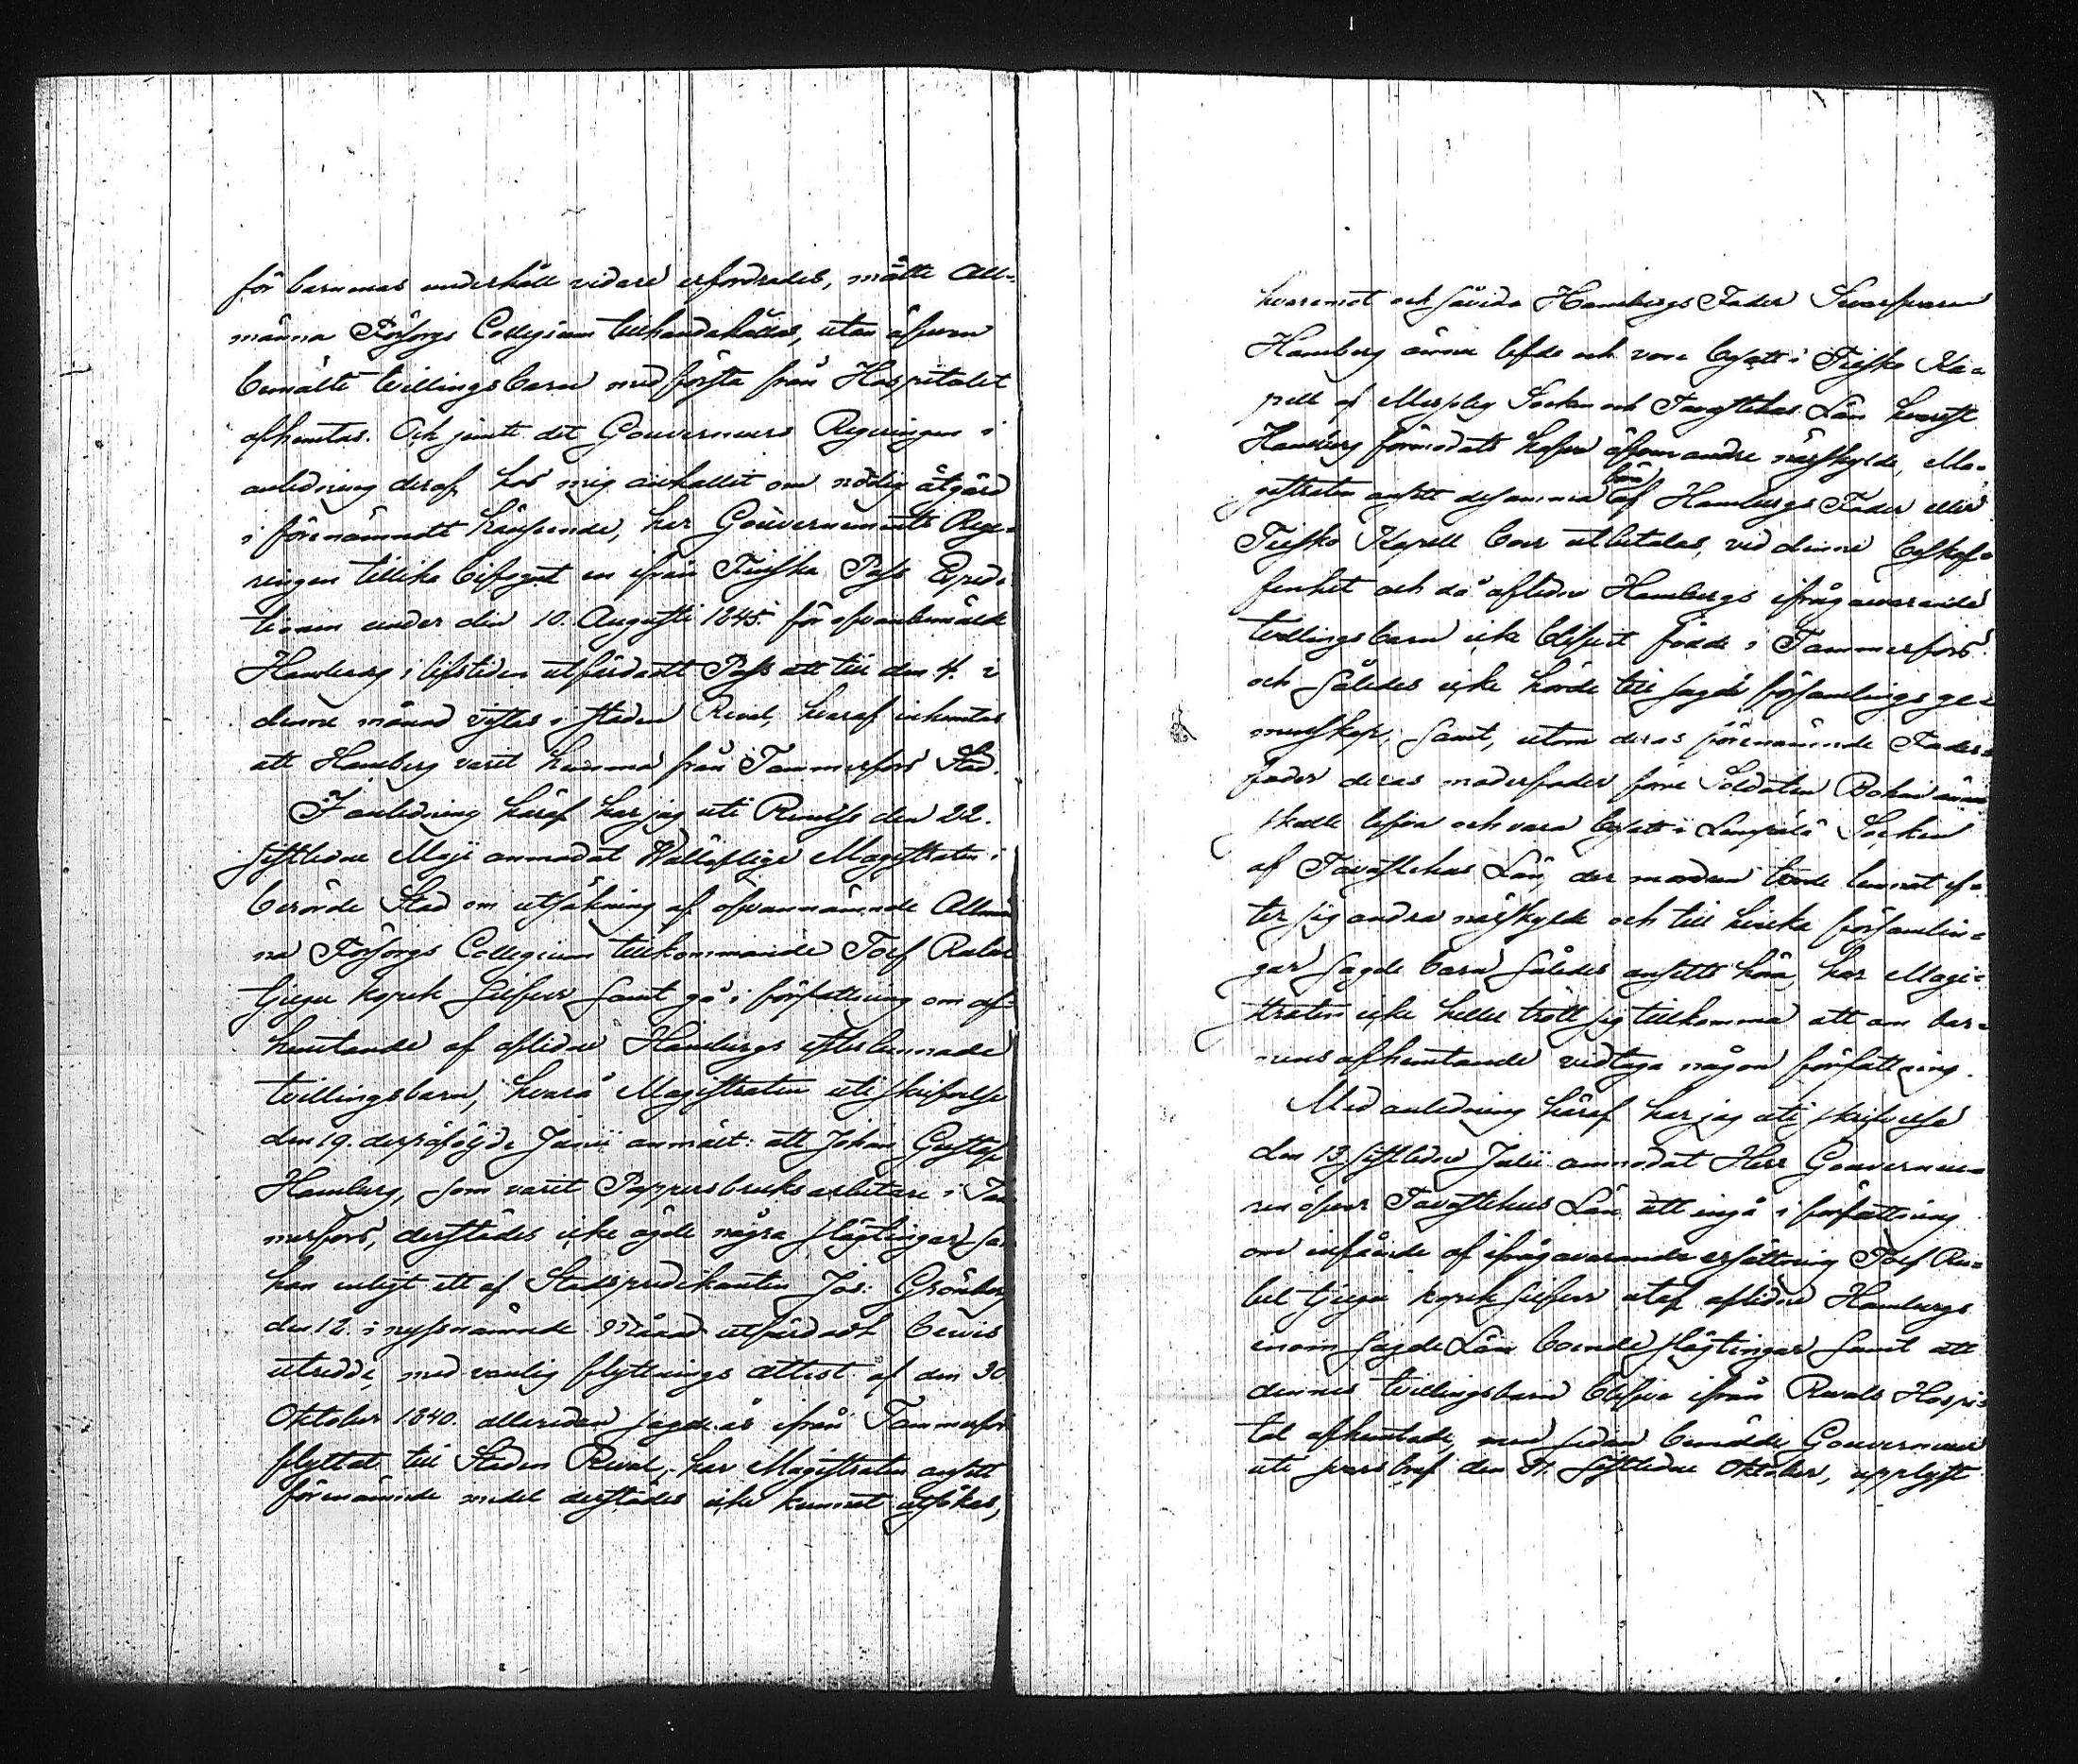 för barnenas underhåll vidare erfordrades, måtte All-
männa Försorgs Collegium tillhandahållas, utan äfven
bemälte tvillingsbarn med första från Hospitalet
afhemtas. Och jemte det Gouvernements Regeringen i
anledning deraf hos mig anhållit om nödig åtgärd
i förenämndt hänseende, har Gouvernements Rege-
ringen tillika bifogat en ifrån Finska Pass Expedi-
tionen under den 10. Augusti 1845. för ofvanbemälte
Hamberg i lifstiden utfärdadt Pass att till den 4. i
denne månad vistas i staden Reval, hvaraf inhemtas
att Hamberg varit hemma från Tammerfors Stad.
I anledning häraf har jag uti Remiss den 22.
sistledne Maji anmodat Välloflige Magistraten i
berörde Stad om utsökning af ofvannämnde Allmän
na Försorgs Collegium tillkommande Tolf Rubel
tjugu kopek Silfver samt gå i författning om af-
hemtande af aflidne Hambergs efterlemnade
tvillingsbarn, hvarå Magistraten uti skrifvelse
den 19. derpåföljde Junii anmält: att Johan Gustaf
Hamberg, som varit Pappersbruksarbetare i Tam
merfors, derstädes icke ägde några slägtingar, sam
han enligt ett af Stadspredikanten Jos: Grönberg
den 12. i nyssnämnde Månad utfärdadt bevis
utredde, med vanlig flyttnings attest af den 30
Oktober 1840. allaredan sagde år ifrån Tammerfors
flyttat till Staden Reval, har Magistraten ansett
förenämnde medel derstädes icke kunnat utsökas,
hvaremot och såvida Hambergs Fader Svarfvaren
Hamberg ännu lefde och vore bosatt i Teisko Ka-
pell af Messuby Socken och Tavastehus Län hvarest
Hamberg förmodats hafva äfven andre närskylde, Ma-
gistraten ansett desamma böra af Hambergs Fader eller
Teisko Kapell utbetalas, vid denne beskaf-
fenhet och då aflidne Hambergs ifrågavarande
tvillingsbarn icke blifvit födde i Tammerfors
och således icke hörde till sagde församlings ge-
menskap, samt, utom deras förenämnde Faders
fader deras moderfader förre Soldaten Bohm ännu
skall lefva och vara bosatt i Lempälä Socken
af Tavastehus Län, der modren torde lemnat ef-
ter sig andra närskylde och till hvilka församlin-
gar sagde barn således ansetts höra, har Magi-
straten icke heller trott sig tillkomma att om bar-
nens afhemtande vidtaga någon författning.
Med anledning häraf har jag uti skrifvelse
den 13. sistledne Julii anmodat Herr Gouverneu-
ren öfver Tavastehus Län att ingå i författning
om infående af ifrågavarande ersättning Tolf Ru-
bel tjugu kopek silfver utaf aflidne Hambergs
inom sagde Län boende slägtingar samt att
dennes tvillingsbarn blifva ifrån Revals Hospi-
tal afhemtade, men sedan bemälde Gouverneur
uti svarsbref den 31. sistledne Oktober, upplyst